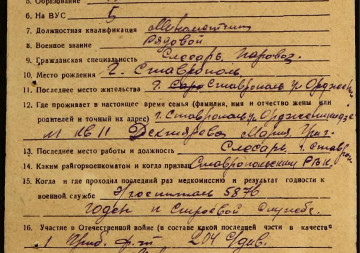 5. Образование
6. На ВУС 5
7. Должностная квалификация
8. Военное звание Рядовой
9. Гражданская специальность Слесарь паровоз.
10. Место рождения г. Ставрополь
11. Последнее место жительства г. Ставрополь ул Орджон
12. Где проживает в настоящее время семья (фамилия, имя и отчество жены или
родителей и точный их адрес) г. Ставрополь ул. Орджоникидзе
Мария Григ.
13. Последнее место работы и должность Слесарь, г. Ставроп
14. Каким райгорвоенкоматом и когда призван Ставропольским РВК
15. Когда и где проходил последний раз медкомиссию и результат годности к
военной службе Э/госпиталь 5876
годен к строевой службе.
16. Участие в Отечественной войне (в составе какой последней части в качестве
1 Приб. фр-т 204 с/див.